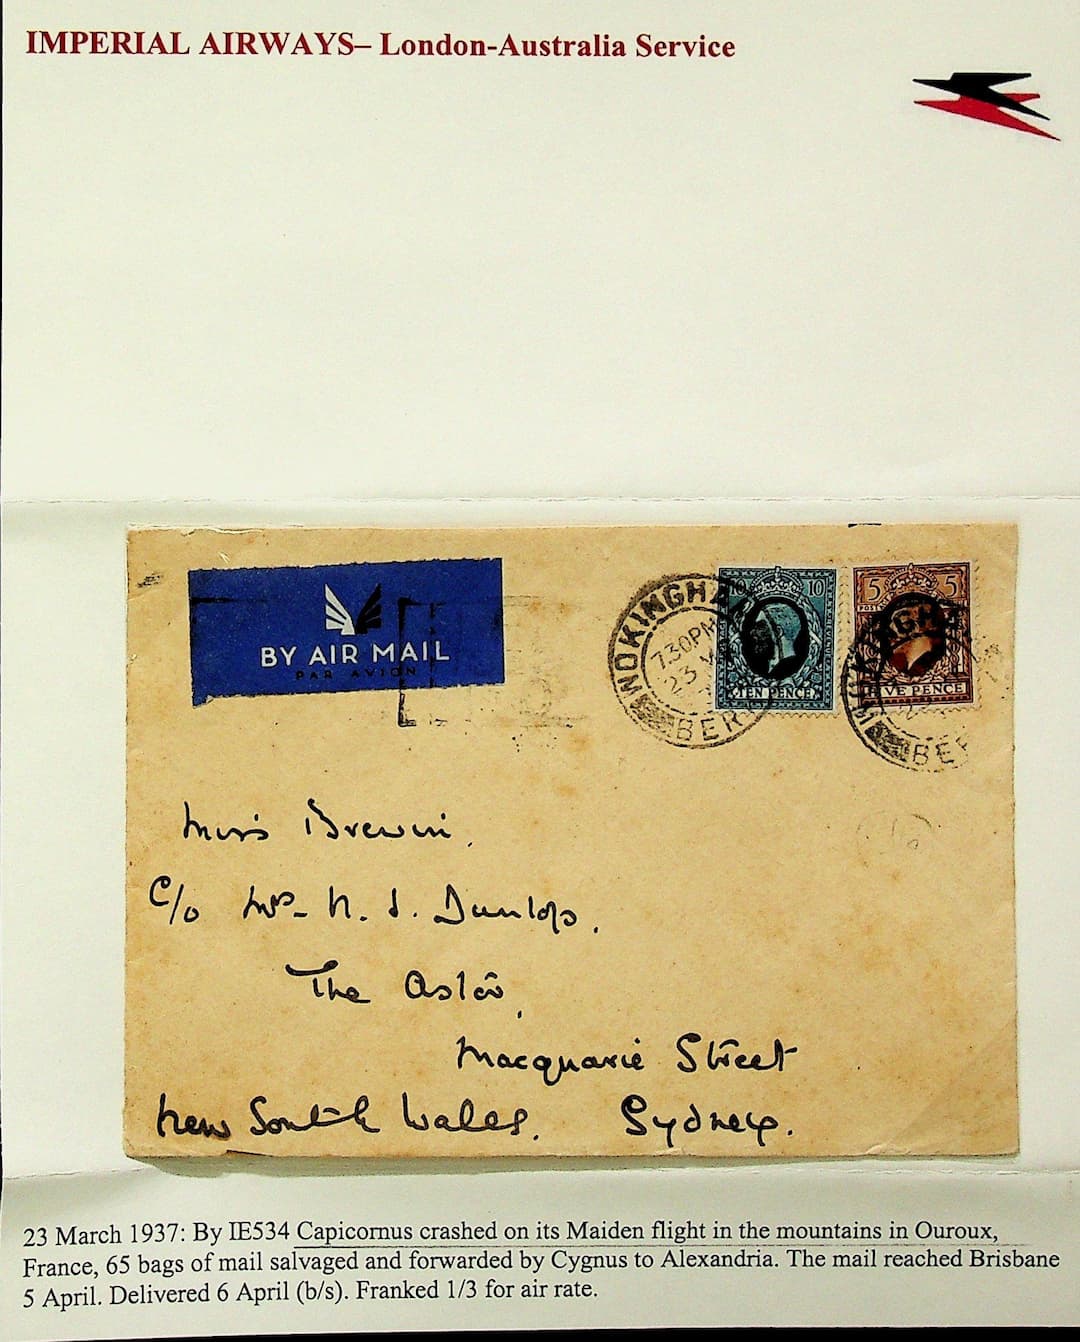 IMPERIAL AIRWAYS– London-Australia Service
BY AIR MAIL
PAR AVION
WOKINGHAM
7.30PM
23 M
BER
10 10
TEN PENCE
5 5
POST
VE PENCE
WOKINGHA
BER
Miss Brewin,
C/o Mrs- N. J. Dunlop.
The Astor,
Macquarie Street
New South Wales. Sydney.
23 March 1937: By IE534 Capicornus crashed on its Maiden flight in the mountains in Ouroux,
France, 65 bags of mail salvaged and forwarded by Cygnus to Alexandria. The mail reached Brisbane
5 April. Delivered 6 April (b/s). Franked 1/3 for air rate.